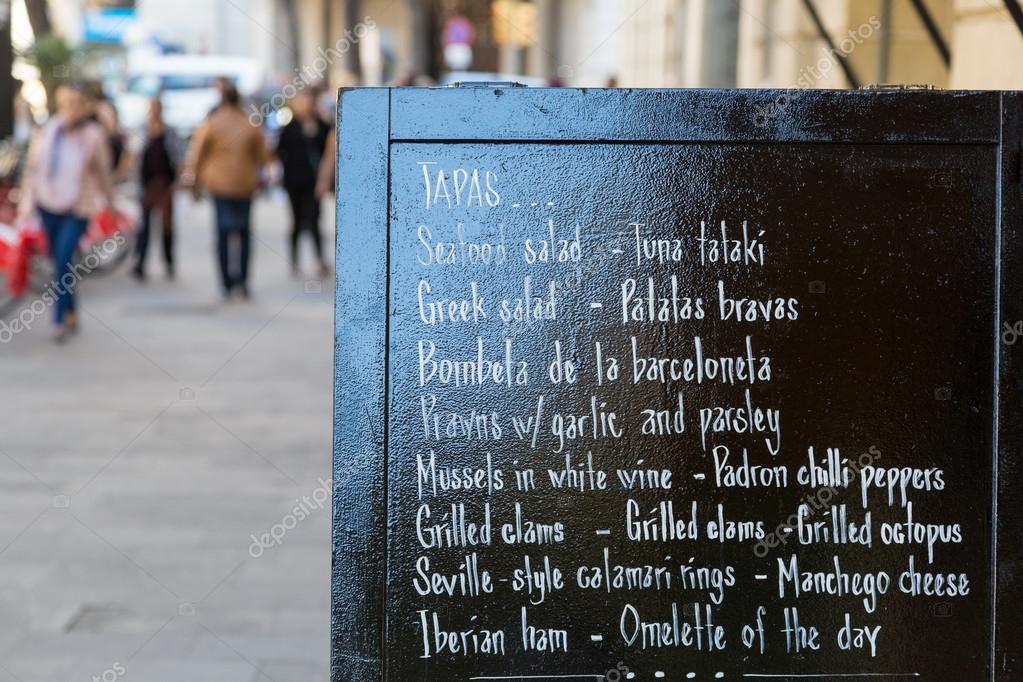 TAPAS...
Seafood salad - Tuna tataki
Greek salad - Patatas bravas
Bombeta de la barceloneta
Prawns w/ garlic and parsley
Mussels in white wine - Padron chilli peppers
Grilled clams - Grilled clams - Grilled octopus
Seville-style calamari rings - Manchego cheese
Iberian ham - Omelette of the day